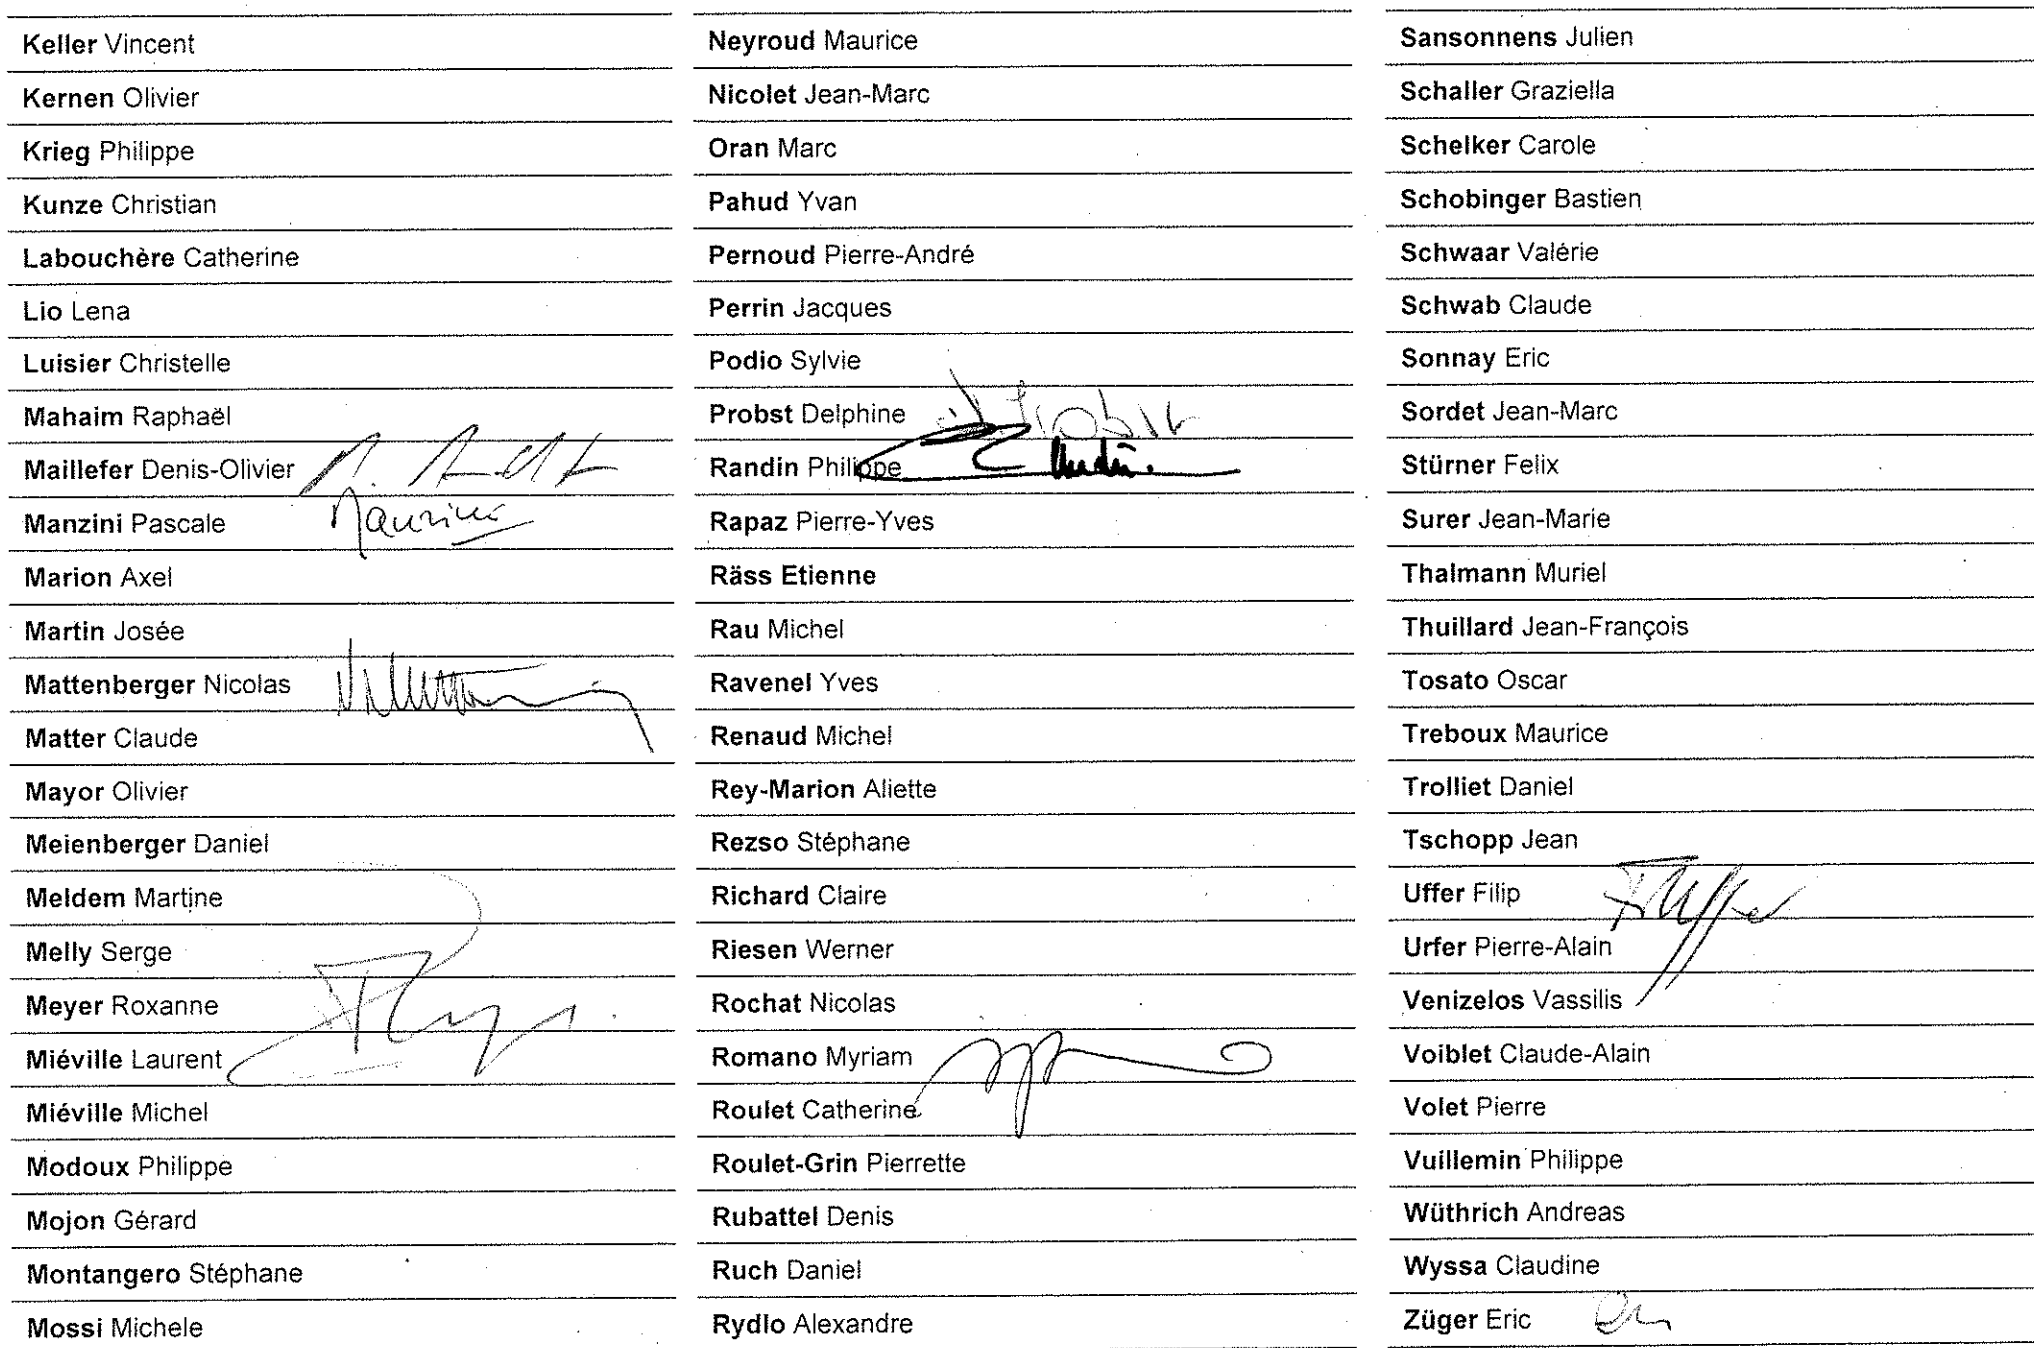 Keller Vincent
Kernen Olivier
Krieg Philippe
Kunze Christian
Labouchère Catherine
Lio Lena
Luisier Christelle
Mahaim Raphaël
Maillefer Denis-Olivier
Manzini Pascale
Manzini
Marion Axel
Martin Josée
Mattenberger Nicolas
Matter Claude
Mayor Olivier
Meienberger Daniel
Meldem Martine
Melly Serge
Meyer Roxanne
Miéville Laurent
Miéville Michel
Modoux Philippe
Mojon Gérard
Montangero Stéphane
Mossi Michele
Neyroud Maurice
Nicolet Jean-Marc
Oran Marc
Pahud Yvan
Pernoud Pierre-André
Perrin Jacques
Podio Sylvie
Probst Delphine
Randin Philippe
Rapaz Pierre-Yves
Räss Etienne
Rau Michel
Ravenel Yves
Renaud Michel
Rey-Marion Aliette
Rezso Stéphane
Richard Claire
Riesen Werner
Rochat Nicolas
Romano Myriam
Roulet Catherine
Roulet-Grin Pierrette
Rubattel Denis
Ruch Daniel
Rydlo Alexandre
Sansonnens Julien
Schaller Graziella
Schelker Carole
Schobinger Bastien
Schwaar Valérie
Schwab Claude
Sonnay Eric
Sordet Jean-Marc
Stürner Felix
Surer Jean-Marie
Thalmann Muriel
Thuillard Jean-François
Tosato Oscar
Treboux Maurice
Trolliet Daniel
Tschopp Jean
Uffer Filip
Urfer Pierre-Alain
Venizelos Vassilis
Voiblet Claude-Alain
Volet Pierre
Vuillemin Philippe
Wüthrich Andreas
Wyssa Claudine
Züger Eric